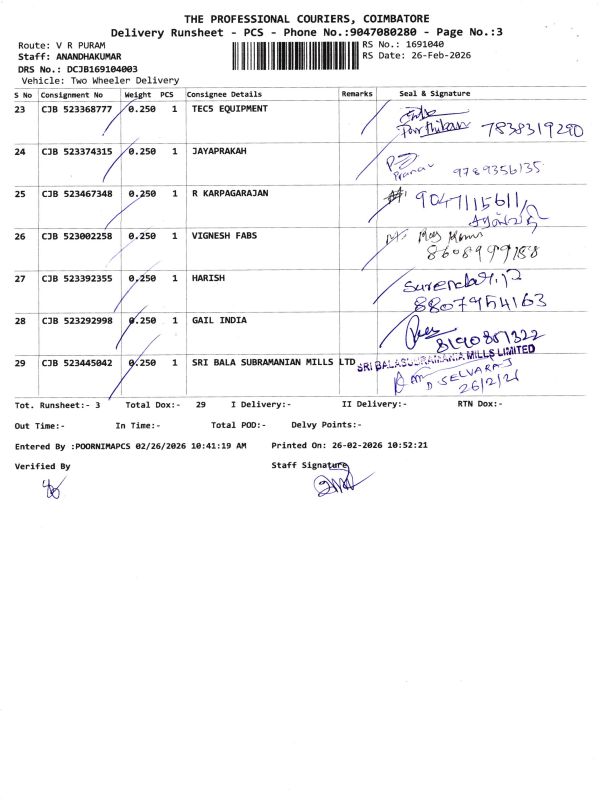 THE PROFESSIONAL COURIERS, COIMBATORE
Delivery Runsheet - PCS - Phone No.:9047080280 - Page No.:3
Route: V R PURAM RS No.: 1691040
Staff: ANANDHAKUMAR RS Date: 26-Feb-2026
DRS No.: DCJB169104003
Vehicle: Two Wheeler Delivery
S No Consignment No Weight PCS Consignee Details Remarks Seal & Signature
23 CJB 523368777 0.250 1 TEC5 EQUIPMENT
Parthiban 7838319290
24 CJB 523374315 0.250 1 JAYAPRAKAH
Pranav 9789356135
25 CJB 523467348 0.250 1 R KARPAGARAJAN 9047115611
26 CJB 523002258 0.250 1 VIGNESH FABS
8608999188
27 CJB 523392355 0.250 1 HARISH
8807954163
28 CJB 523292998 0.250 1 GAIL INDIA
29 CJB 523445042 0.250 1 SRI BALA SUBRAMANIAN MILLS LTD SRI BALASUBRAMANIA MILLS LIMITED
D SELVARAJ
26/2/26
Tot. Runsheet:- 3 Total Dox:- 29 I Delivery:- II Delivery:- RTN Dox:-
Out Time:- In Time:- Total POD:- Delvy Points:-
Entered By :POORNIMAPCS 02/26/2026 10:41:19 AM Printed On: 26-02-2026 10:52:21
Verified By Staff Signature